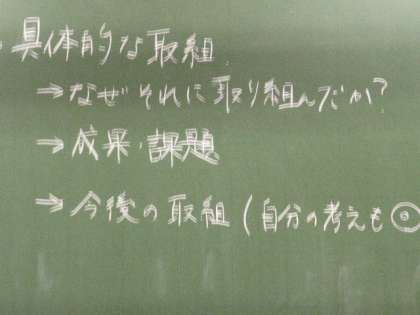 ・具体的な取組
⇒なぜそれに取り組んだか?
⇒成果・課題
⇒今後の取組(自分の考えも◎